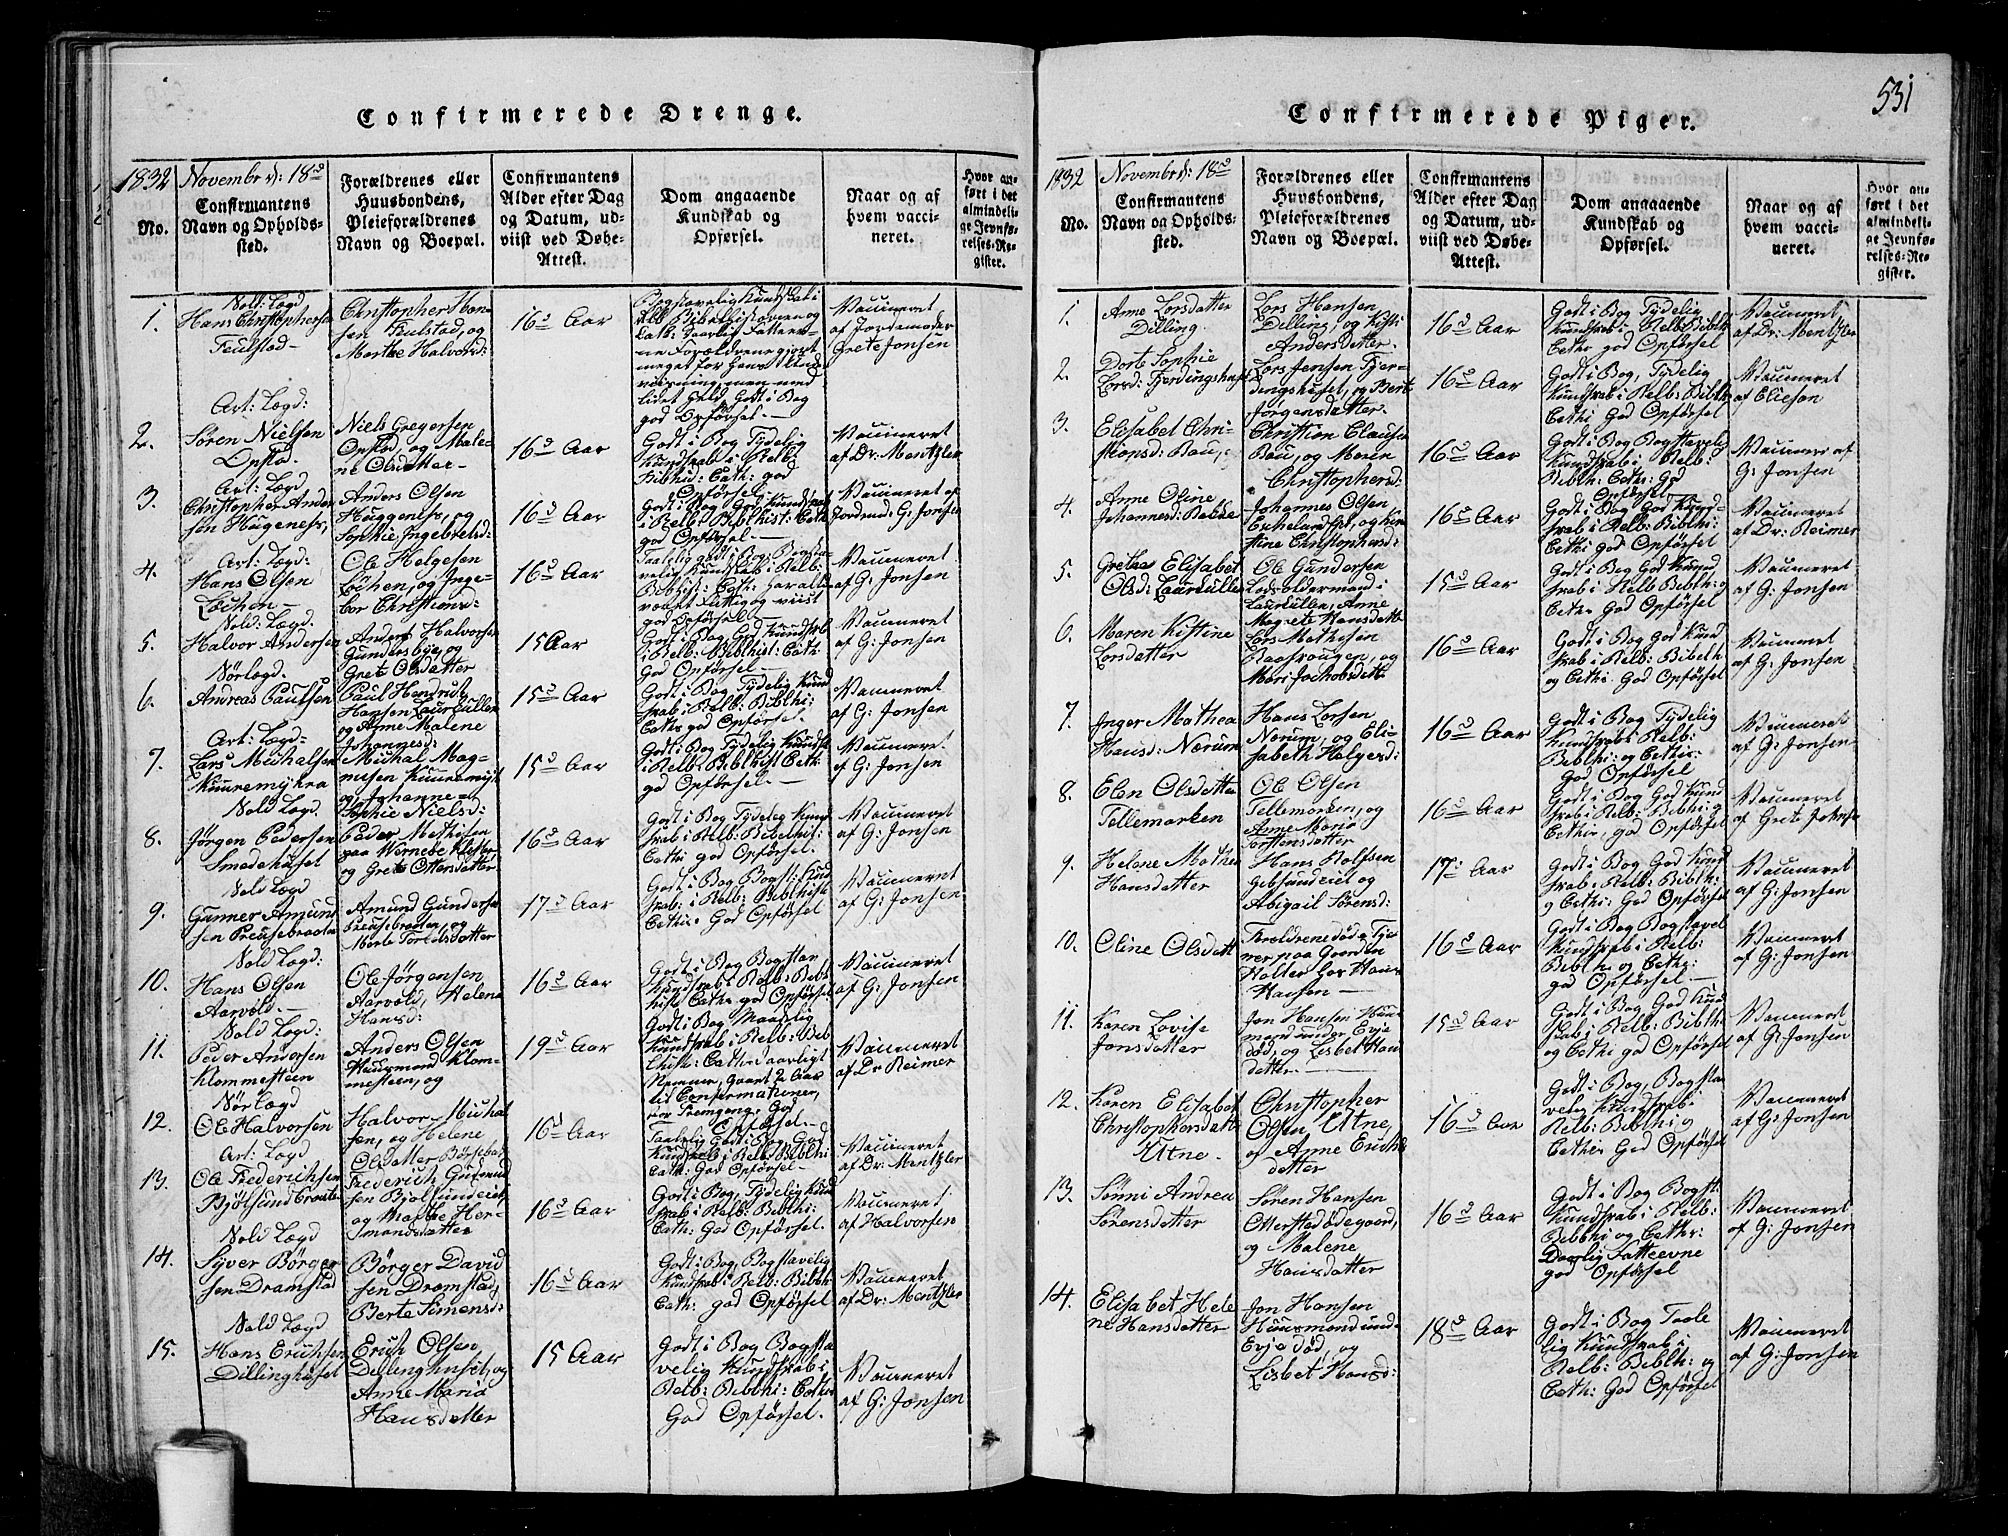 531
Confirmerede Drenge.
1832 Novembr d: 18de
No.
Confirmantens
Navn og Opholds-
sted.
Forældrenes eller
Huusbondens,
Pleieforældrenes
Navn og Boepæl.
Confirmantens
Alder efter Dag
og Datum, ud-
viist ved Døbe-
Attest.
Dom angaaende
Kundskab og
Opførsel.
Naar og af
hvem vacci-
neret.
Hvor an-
ført i det
almindeli-
ge Jevnfø-
relses-Re-
gister.
1.
Nold: Lægd
Hans Christophersen
Feulstad
Christopher Han-
sen Feulstad, og
Marthe Halvorsd:
16 Aar
Bogstavelig Kundskab i
meget for hans Under-
viisning, men med
lidet Held, Godt i Bog
god Opførsel.
Vaccineret
af Jordemoder
Grete Jonsen
2.
Art: Lægd:
Søren Nielsen
Opstad.
Niels Gregersen
Opstad, og Male-
ne Olsdatter
16 Aar
Godt i Bog Tydelig
Kundskab i Relb:
Bibhist: Cath: god
Opførsel
Vaccineret
af Dr: Mentzler
3.
Art: Lægd
Christopher Ander
sen Hugeness,
Anders Olsen
Huggeness, og
Sophie Ingebretsd:
16 Aar
Godt i Bog, God Kundskab
i Relb: Biblhist: Cath
god Opførsel
Vaccineret af
Jordmd: G: Jonsen
4.
Art: Lægd:
Hans Olsen
Løchen
Ole Helgesen
Løchen, og Inge-
bor Christiansd:
16 Aar
Taalelig godt i Bog, Bogsta-
velig Kundskab i Relb:
Bibhist: Cath: Har alle
været flittig og viist
god Opførsel
Vaccineret
af G: Jonsen
5.
Nold: Lægd.
Halvor Andersen
Anders Halvorsen
Gundersbye, og
Grete Olsdatter
15 Aar
Godt i Bog, God Kundskab
i Relb: Biblhist: Cath:
God Opførsel
Vaccineret
af G: Jonsen
6.
Nørlægd.
Andreas Paulsen
Paul Hendrik
Hansen Laurkullen
og Anne Malene
Johannesd:
15 Aar
Godt i Bog Tydelig Kund
skab i Relb: Biblhi:
Cath: god Opførsel.
Vaccineret
af G: Jonsen
7.
Art: Lægd:
Lars Michalsen
Kuuremykra
Michal Mag-
nusen Kuuremyr
og Johanne
Sophie Nielsd:
15 Aar
Godt i Bog Tydelig Kundsk
i Relb: Biblhist Cath:
god Opførsel.
Vaccineret.
af G: Jonsen
8.
Nold Lægd.
Jørgen Pedersen
Smedehuset
Peder Mathisen
paa Wernebe Kloster
og Grete Ottersdatter
16 Aar
Godt i Bog Tydelig Kund
skab i Relb: Bibelhis:
Cathi god Opførsel.
Vaccineret
af G: Jonsen
9.
Nold Lægd
Gunner Amund
sen Preusebraaten
Amund Gunders
Preusebraaten, og
Marte Torelsdatter
17 Aar
Godt i Bog Bogst: Kund
skab i Relb: Biblhist
Cathi: God Opførsel
Vaccineret
af G: Jonsen
10.
Nold Lægd:
Hans Olsen
Aarvold.
Ole Jørgensen
Aarvold, Helena
Hansd:
16 Aar
Godt i Bog Bogstav
Kundskab i Relb: Bibl
hist: Cathi god Opførsel
Vaccineret
af G: Jonsen
11.
Nold Lægd:
Peder Andersen
Klommesteen
Anders Olsen
Huusmand Klom-
mesteen, og
19 Aar
Godt i Bog Maadelig
Kundskab i Relb: Bib
hist: Cath: Daarligt
Nemme, Gaaet 2 Aar
til Confirmationen,
for Fremgang: God
Opførsel.
Vaccineret
af Dr Reimer
12.
Nør Lægd
Ole Halvorsen
Halvor Michal
sen, og Helene
Olsdatter
16 Aar
Taalelig Godt i Bog, God
Kundskab i Relb: Biblhi
Cath: God Opførsel
Vaccineret
af Dr: Mentzler
13.
Art: Lægd
Ole Frederichsen
Bjølsund
Frederich Gudmund
sen Bjølsundeiet
og Marthe Her-
mandsdatter
16 Aar
Godt i Bog, Tydelig Kund
skab i Relb: Biblhi:
Cath: God Opførsel.
Vaccineret
af Halvorsen
14.
Nold Lægd
Syver Børger
sen Dramstad
Børger David
sen Dramstad,
Berte Simensd:
16 Aar
Godt i Bog, Bogstavelig
Kundskab i Relb: Biblh
Cath: god Opførsel
Vaccineret
af Dr: Mentzler
15.
Nold Lægd
Hans Erichsen
Dillinghuset
Erich Olsen
Dillinghuset, og
Anne Maria
Hansdatter
15 Aar
Godt i Bog Bogsta
velig Kundskab i
Relb: Biblhi: Cath:
God Opførsel.
Vaccineret
af G: Jonsen
Confirmerede Piger.
1832 Novembr d: 18de
No.
Confirmantens
Navn og Opholds-
sted.
Forældrenes eller
Huusbondens,
Pleieforældrenes
Navn og Boepæl.
Confirmantens
Alder efter Dag
og Datum, ud-
viist ved Døbe-
Attest.
Dom angaaende
Kundskab og
Opførsel.
Naar og af
hvem vacci-
neret.
Hvor an-
ført i det
almindeli-
ge Jevnfø-
relses-Re-
gister.
1.
Anne Larsdatter
Dilling.
Lars Hansen
Dilling, og Kisti
Andersdatter.
16 Aar
Godt i Bog Tydelig
Kundskab i Relb Biblh
Cathi god Opførsel
Vaccineret
af Dr: Mentzler
2.
Dorte Sophie
Larsd: Fjerdingshuset
Lars Jensen Fjer-
dingshuset, og Berte
Jørgensdatter.
16 Aar
Godt i Bog, Tydelig
Kundskab i Relb: Biblh
Cathi God Opførsel
Vaccineret
af Eliesen
3.
Elisabet Chri-
stiansd: Bau,
Christian Clausen
Bau, og Maren
Christophersd:
16 Aar
Godt i Bog Bogstavelig
Kundskab i Relb:
Biblh: Cath: God
Opførsel
Vaccineret af
G: Jonsen
4.
Anne Oline
Johannesd: Bakke
Johannes Olsen
Eskelandsst, og Kir
stine Christophersd:
16 Aar
Godt i Bog God Kund-
skab i Relb: Biblhi:
Cathi god Opførsel
Vaccineret
af Dr: Reimer
5.
Gretea Elisabet
Olsd: Laurkullen
Ole Gundersen
Lodsoldermand i
Laurkullen, Anne
Magrete Hansdatt
15 Aar
Godt i Bog God Kund
skab i Relb Biblh: og
Cathi God Opførsel
Vaccineret
af G: Jonsen
6.
Maren Kistine
Larsdatter
Lars Mathesen
Raastrougen, og
Mari Jachobsdatt
16 Aar
Godt i Bog God Kund
skab i Relb: Bibelh:
og Cathi: God Opførsel
Vaccineret
af G: Jonsen
7.
Inger Mathea
Hansd: Nærum
Hans Larsen
Nærum, og Eli-
sabeth Helgesd:
16 Aar
Godt i Bog Tydelig
Kundskab i Relb:
Biblhi: og Cathi:
God Opførsel
Vaccineret
af G: Jonsen
8.
Elen Olsdatter
Tellemarken
Ole Olsen
Tellemarken, og
Anne Maria
Torstensdatter
16 Aar
Godt i Bog God Kund
skab i Relb: Biblhi: og
Cathi, god Opførsel
Vaccineret
af Grete Johnsen
9.
Helene Mathea
Hansdatter
Hans Rolfsen
Gibsundeiet og
Abigail Sørensd:
17 Aar
Godt i Bog God Kund
skab i Relb: Biblhi:
og Cathi: God Opførsel
Vaccineret
af G: Jonsen
10.
Oline Olsdatt
Foreldrene døde, Tje
ner paa Gaarden
Halter hos Hans
Hansen
16 Aar
Godt i Bog Bogstavel
Kundskab i Relb:
Biblhi og Cathi:
god Opførsel
Vaccineret
af G: Jonsen
11.
Karen Lovise
Jonsdatter
Jon Hansen Huus
mand under Evje
død, og Lisbet Hans
datter.
15 Aar
Godt i Bog God Kund
skab i Relb: Biblhi
og Cathi god Opførsel
Vaccineret
af G: Jonsen
12.
Karen Elisabet
Christophersdatt
Utne.
Christopher
Olsen Utne,
og Anne Erichs
datter
16 Aar
Godt i Bog, Bogsta
velig Kundskab i
Relb: Biblhi og
Cathi God Opførsel
Vaccineret
af G: Jonsen
13.
Sønni Andrea
Sørensdatter
Søren Hansen
Otterstad ødegaard,
og Malene
Hansdatter
16 Aar
Godt i Bog Bogst:
Kundskab i Relb:
Biblhi og Cathi:
Daarlig Fatteevne
god Opførsel
Vaccineret
af G: Jonsen
14.
Elisabet Hele
ne Hansdatter
Jon Hansen
Huusmand und:
Evje død, og
Lisbet Hansd:
18 Aar
Godt i Bog Taale
lig Kundskab i
Relb: Biblh: og
Cath: God Opførsel
Vaccineret
af G: Jonsen